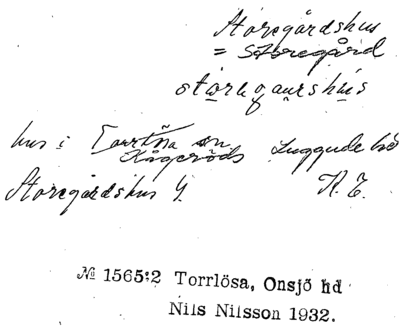 Storegårdshus
= Storegård
hus i Torrlösa sn
Kågeröds Luggude hd
Storegårdshus G. R. E.
№ 1565:2 Torrlösa, Onsjö hd
Nils Nilsson 1932.